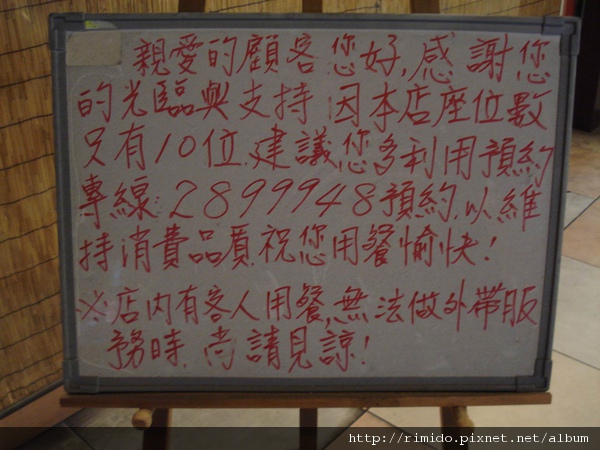 親愛的顧客您好,感謝您
的光臨與支持因本店座位數
只有10位.建議您多利用預約
專線:2899948預約,以維
持消費品質.祝您用餐愉快!
※店內有客人用餐,無法做外帶服
務時,尚請見諒!
http://rimido.pixnet.net/album